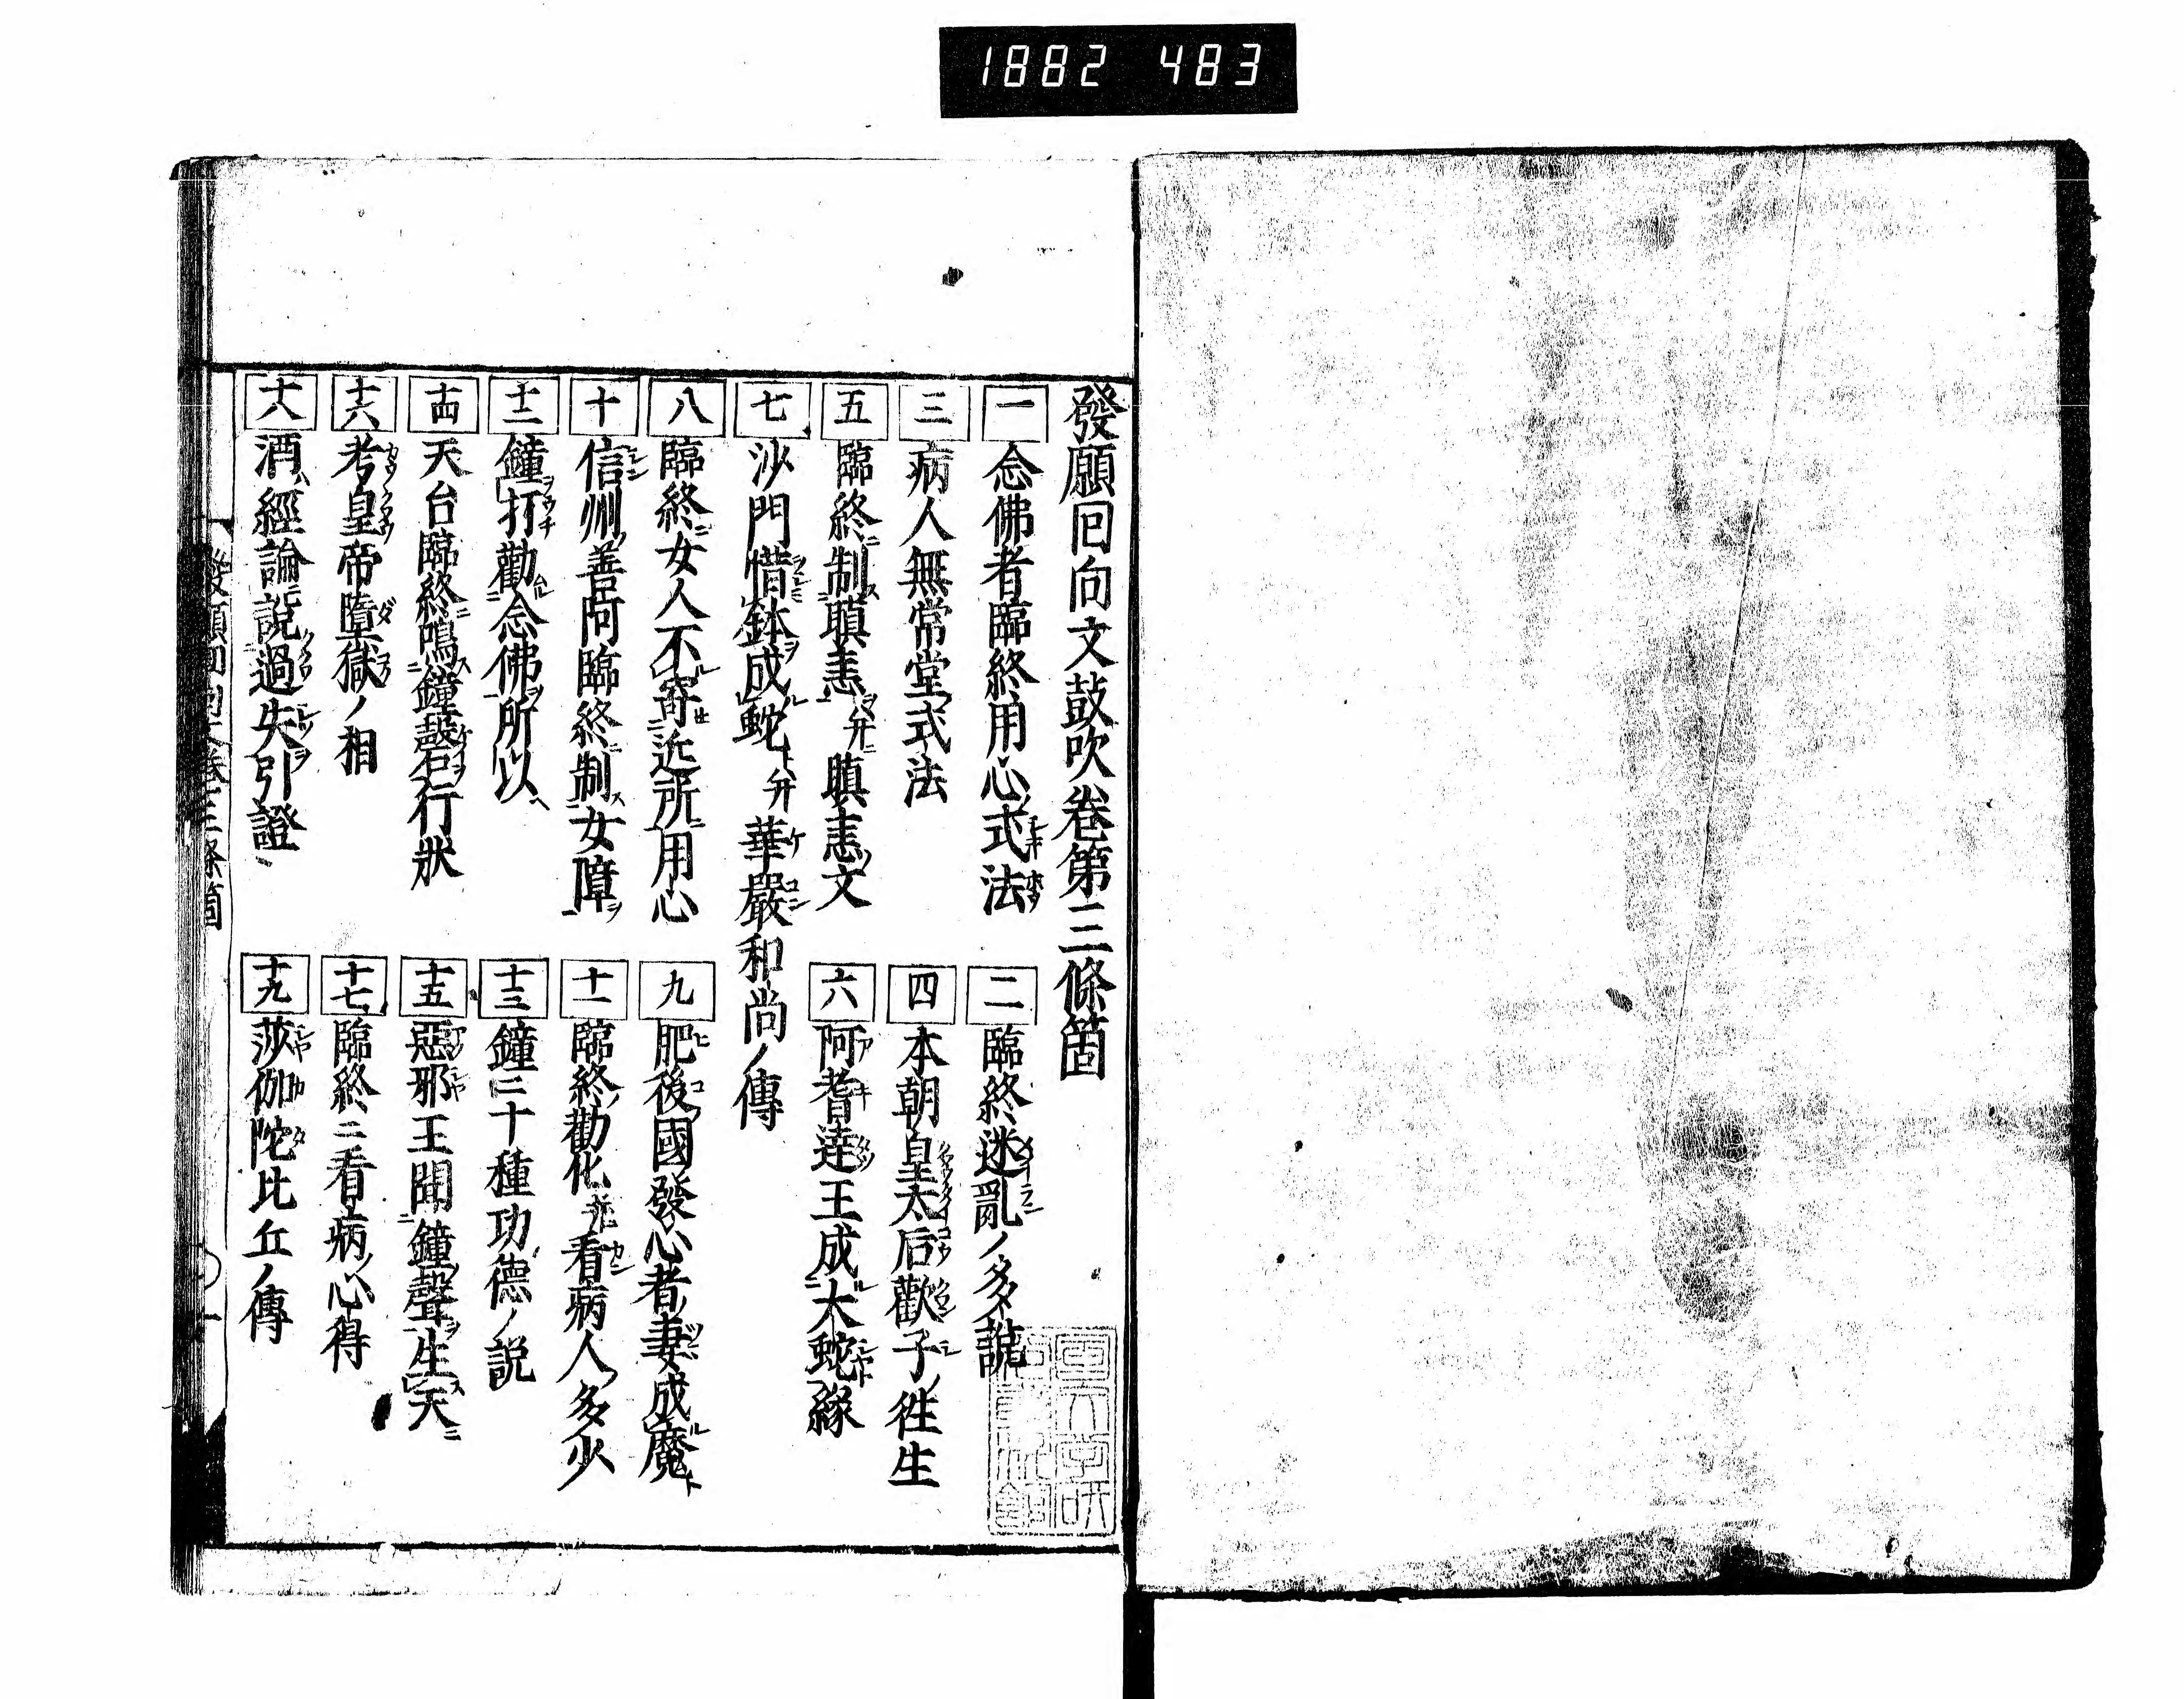 1882 483
發願回向文鼓吹卷第三條箇
一 念佛者臨終用心式法
二 臨終迷亂ノ多說
三 病人無常堂式法
四 本朝皇太后歡子往生
五 臨終ニ制スル瞋恚ヲ并ニ瞋恚ノ文
六 阿耆達王成ル大蛇ト緣
七 沙門惜鉢ヲ成ル蛇ト并華嚴和尚ノ傳
八 臨終ニ女人不ル寄セ近所ニ用心
九 肥後國發心者ノ妻成ル魔ト
十 信州善阿臨終ニ制ス女障ヲ
十一 臨終勸化并ニ看病人ノ多少
十二 鐘打勸ムル念佛ヲ所以
十三 鐘ニ十種功德ノ説
十四 天台臨終ニ鳴ス鐘磬ヲ行狀
十五 惡邪王聞鐘聲ヲ生ス天ニ
十六 考皇帝墮獄ノ相
十七 臨終ニ看病ノ心得
十八 酒ハ經論ニ説過失ヲ引證
十九 莎伽陀比丘ノ傳